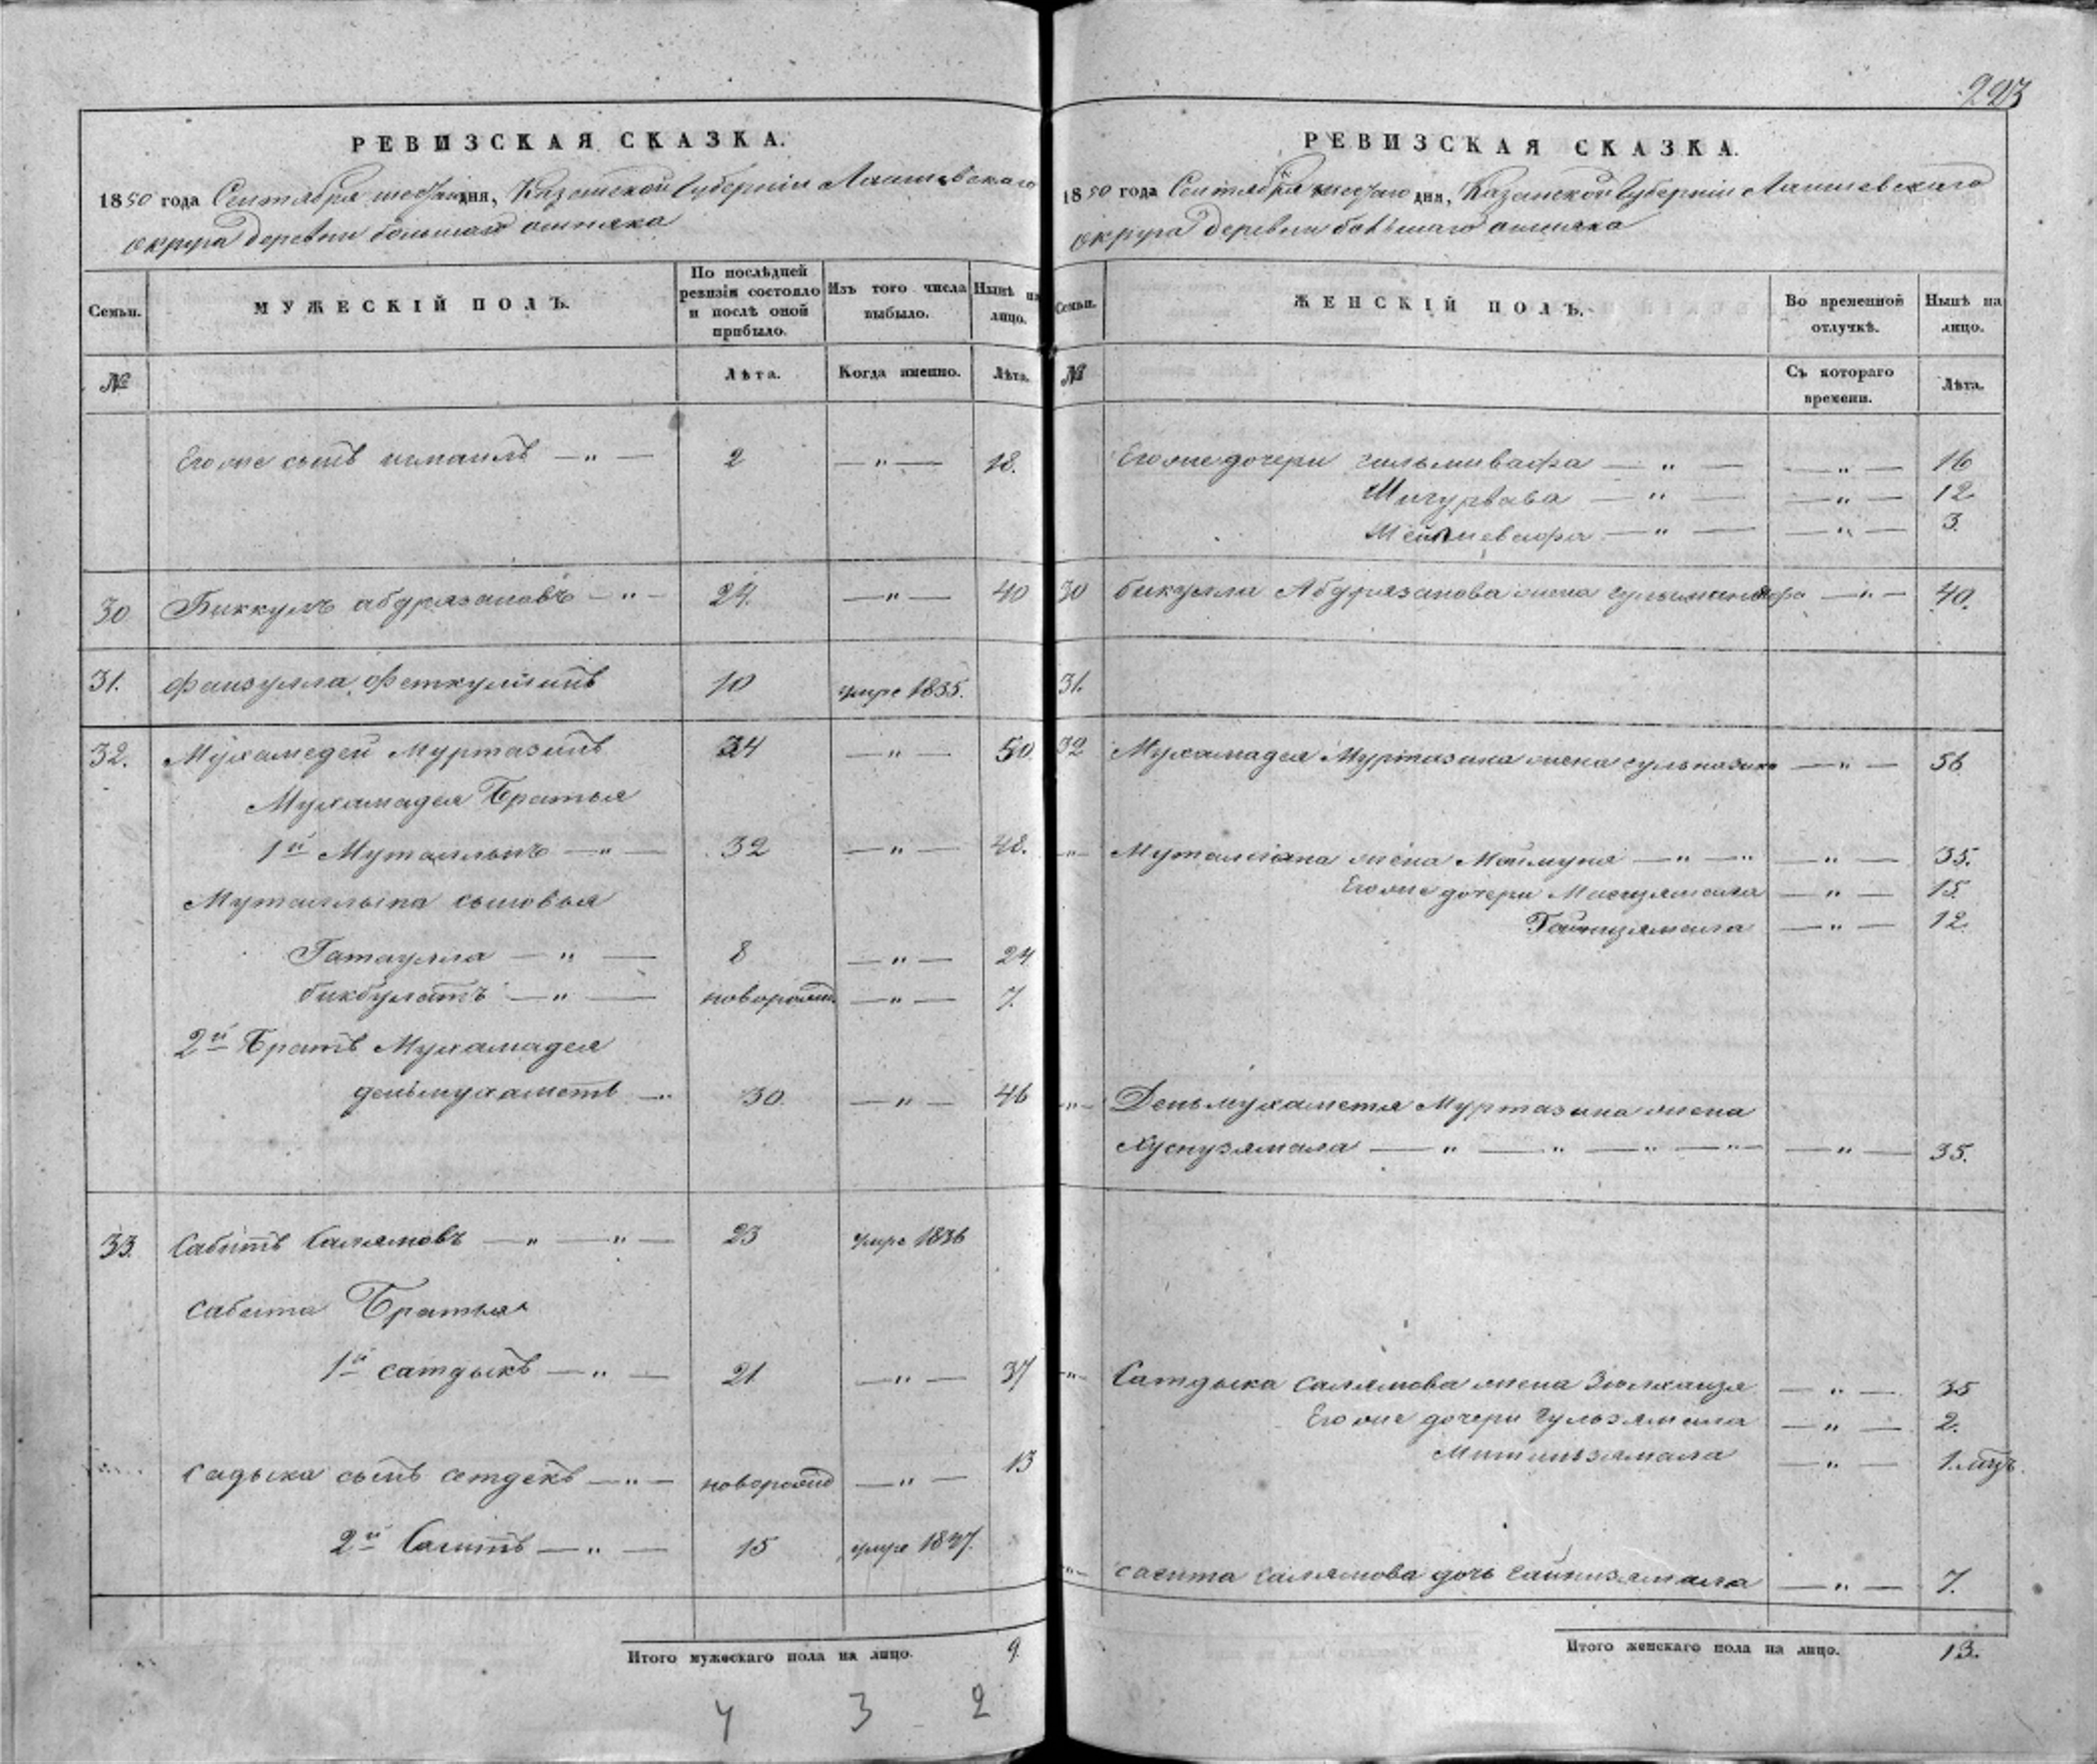 223
РЕВИЗСКАЯ СКАЗКА.
1850 года Сентября шестаго дня, Казанской Губерніи Лаишевскаго
округа деревни большаго ошняка
Семьи.
МУЖЕСКІЙ ПОЛЪ.
По послѣдней ревизіи состояло и послѣ оной прибыло.
Изъ того числа выбыло.
Нынѣ на лицо.
№
Лѣта.
Когда именно.
Лѣта.
Его же сынъ исмаилъ — „ — 2 — „ — 18.
30 Биккулъ абдрязаковъ — „ — 24. — „ — 40
31. Фаизулла Феткуллинъ 10 умре 1835.
32. Мухамедей Муртазинъ 34 — „ — 50
Мухамадея Братья
1й Муталлыпъ — „ — 32 — „ — 48.
Муталлыпа сыновья
Гатаулла — „ — 8 — „ — 24
бикбулатъ — „ — новорожд. — „ — 7.
2й Братъ Мухамадея
деньмухаметъ — „ 30. — „ — 46
33. Сабитъ Салямовъ — „ — „ — 23 умре 1836
сабита Братья
1й сатдыкъ — „ — 21 — „ — 37
садыка сынъ сетдекъ — „ — новорожд — „ — 13
2й Сагитъ — „ — 15 умре 1847.
Итого мужескаго пола на лицо. 9.
4 3 2
РЕВИЗСКАЯ СКАЗКА.
1850 года Сентября шестаго дня, Казанской Губерніи Лаишевскаго
округа деревни большаго ошняка
Семьи.
ЖЕНСКІЙ ПОЛЪ.
Во временной отлучкѣ.
Нынѣ на лицо.
№
Съ котораго времени.
Лѣта.
Его же дочери гильмивафа — „ — — „ — 16
— „ — — „ — 12
— „ — — „ — 3.
30 бикулла Абдрязакова жена — „ — 40.
31.
32 Мухамадея Муртазина жена — „ — 56
— „ — Муталлапа жена Маймуна — „ — „ — „ — 35.
Его же дочери — „ — 15.
Гайнизямала — „ — 12.
— „ — Деньмухаметя Муртазина жена
Хуснузямала — „ — „ — „ — „ — — „ — 35.
— „ — Сатдыка салямова жена — „ — 35
Его же дочери Гульзямала — „ — 2.
— „ — 1. мѣц.
— „ — сагита салямова дочь гайнизямала — „ — 7.
Итого женскаго пола на лицо. 13.